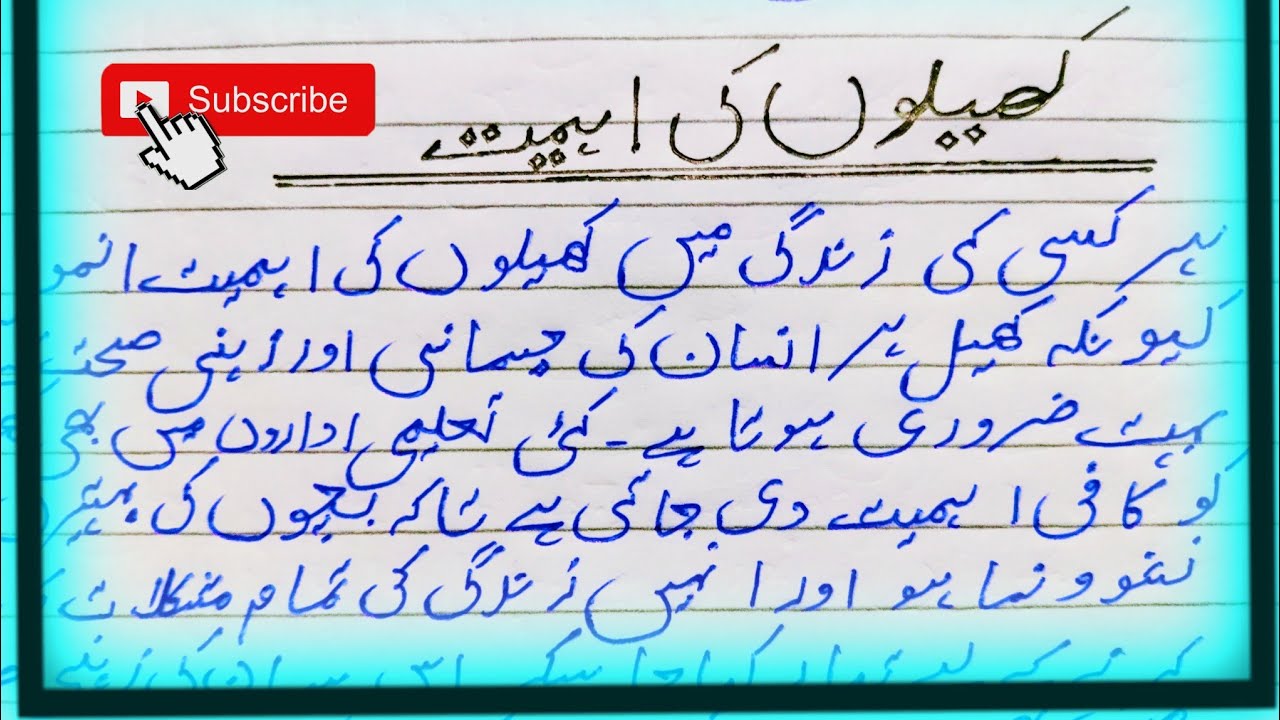 Subscribe
کھیلوں کی اہمیت
ہر کسی کی زندگی میں کھیلوں کی اہمیت انمو
کیونکہ کھیل ہر انسان کی جسمانی اور ذہنی صحت
بہت ضروری ہوتا ہے۔ کئی تعلیمی اداروں میں بھی
کو کافی اہمیت دی جاتی ہے تاکہ بچوں کی بہترین
نشوونما ہو اور انہیں زندگی کی تمام مشکلات
کے لیے تیار کیا جا سکے